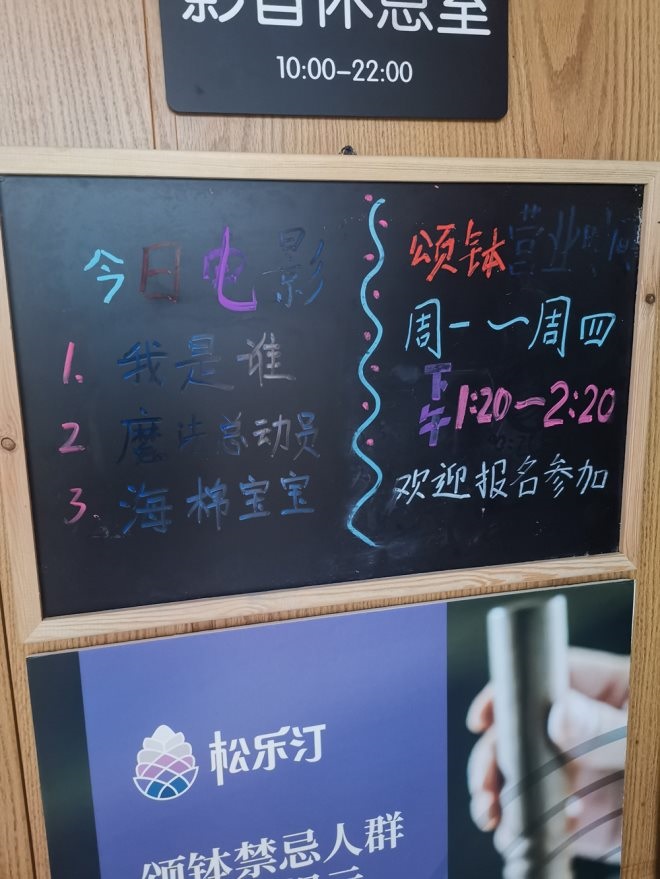 影音休息室
10:00-22:00
今日电影
1. 我是谁
2 魔法总动员
3. 海棉宝宝
颂钵营业时间
周一~周四
下午1:20-2:20
欢迎报名参加
松乐汀
颂钵禁忌人群